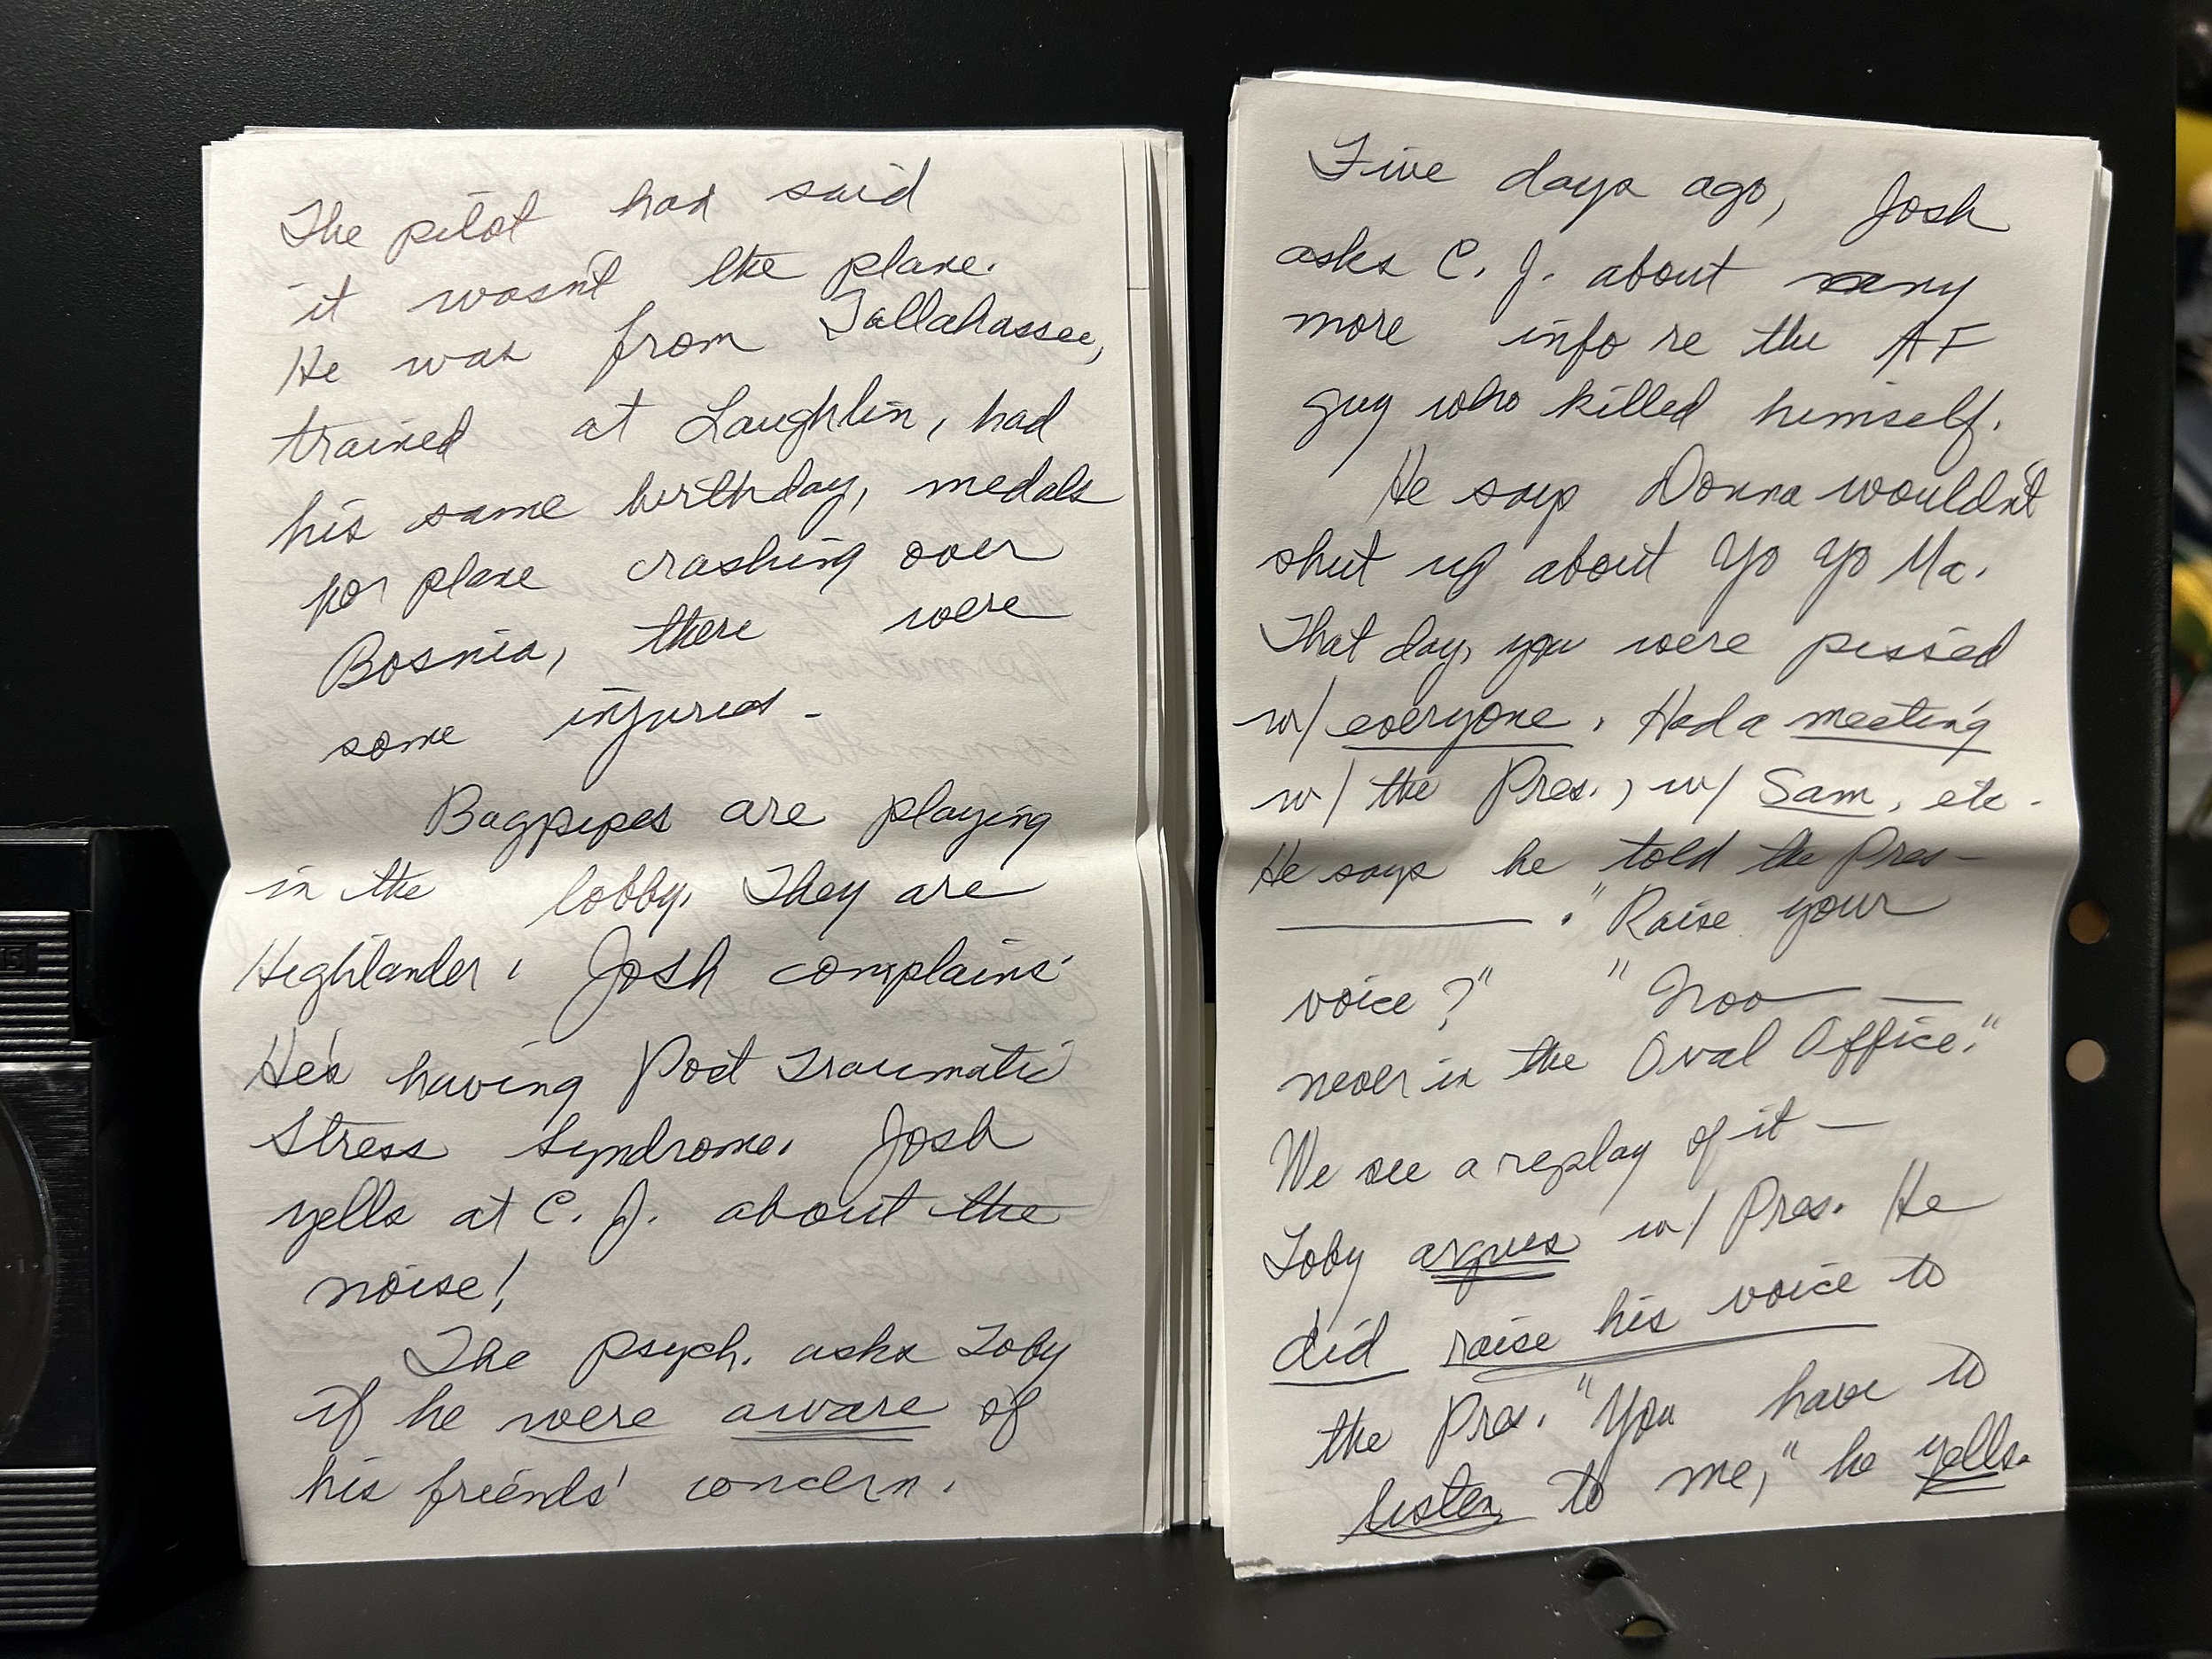 The pilot had said
it wasn't the plane.
He was from Tallahassee,
trained at Laughlin, had
his same birthday, medals
for plane crashing over
Bosnia, there were
some injuries.
Bagpipes are playing
in the lobby. They are
Highlander. Josh complains.
He's having Post Traumatic
Stress Syndrome. Josh
yells at C. J. about the
noise!
The psych. asks Toby
if he were aware of
his friends' concern.
Five days ago, Josh
asks C. J. about any
more info re the AF
guy who killed himself.
He says Donna wouldn't
shut up about Yo Yo Ma.
That day, you were pissed
w/ everyone. Had a meeting
w/ the Pres., w/ Sam, etc.
He says he told the Pres—
——. "Raise your
voice?" "Noo— —
never in the Oval Office."
We see a replay of it —
Toby argues w/ Pres. He
did raise his voice to
the Pres. "You have to
listen to me," he yells.